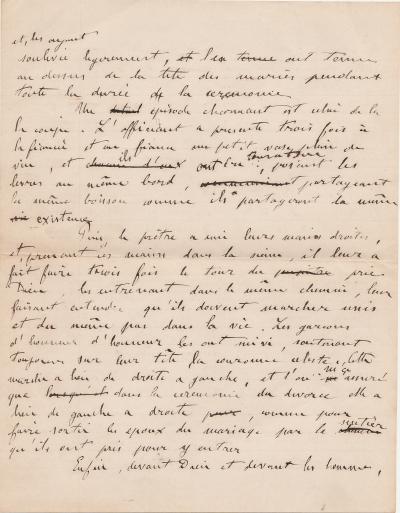 et, les ayant
soulevée légèrement, et l'en tenue ont tenue
au dessus de la tête des mariés pendant
toute la durée de la cérémonie
Un épisode charmant est celui de la
la coupe. L'officiant a présenté trois fois à
la fiancée et au fiancé un petit vase plein de
vin, et chacun d'eux ils ont bu, posant les
lèvres au même bord, partageant
la même boisson comme ils partageront la même
vie existence
Puis, le prêtre a uni leurs mains droites,
et, prenant ces mains dans la sienne, il leur a
fait faire trois fois le tour du prie
Dieu, les entrainant dans le même chemin, leur
faisant entendre qu'ils doivent marcher unis
et du même pas dans la vie. Les garçons
d'honneur d'honneur les ont suivi, soutenant
toujours sur leur tête la couronne céleste. Cette
marche a lieu de droite à gauche, et l'on m'a assuré
que lorsque dans la cérémonie du divorce elle a
lieu de gauche à droite pour, comme pour
faire sortir les époux du mariage par le sentier
qu'ils ont pris pour y entrer
Enfin, devant Dieu et devant les hommes,